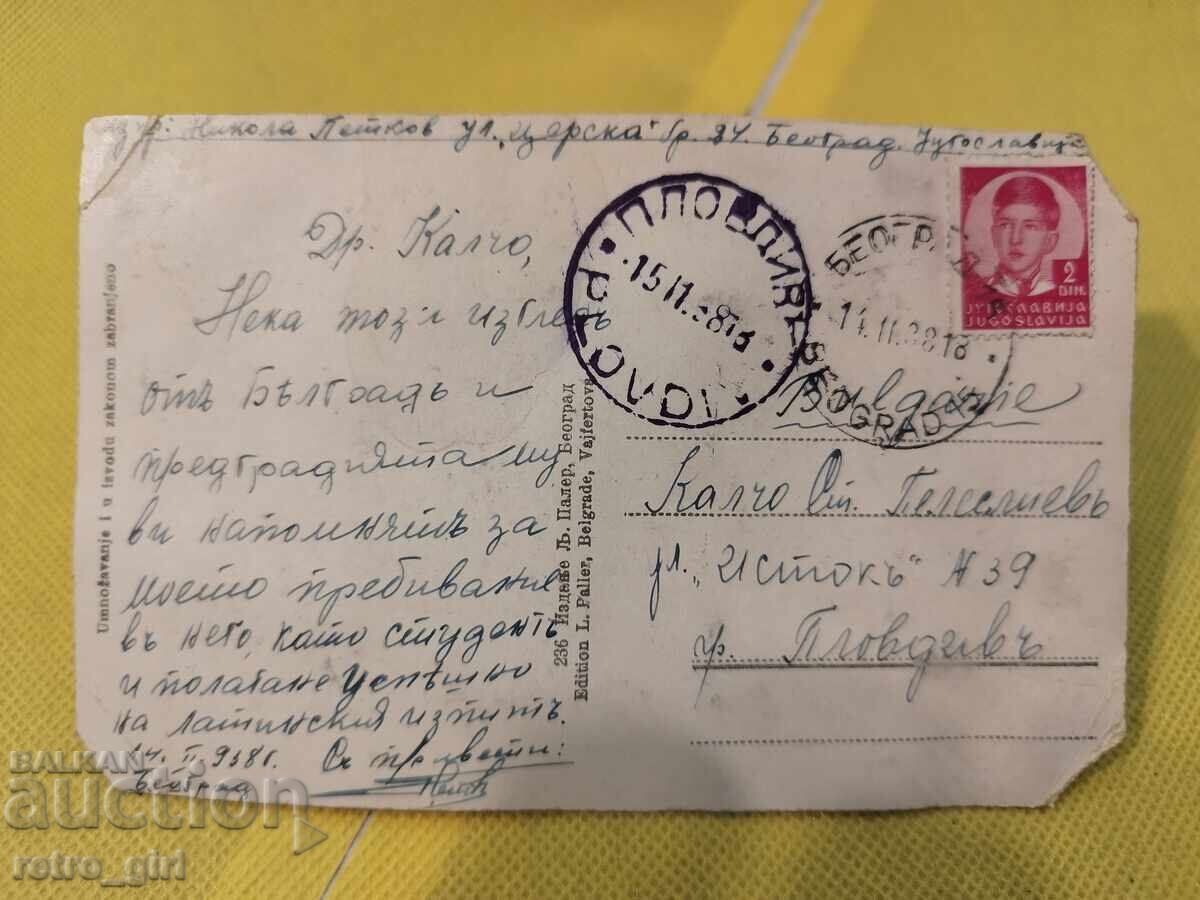 адр: Никола Петков ул. „Церска" бр. 24. Београд. Југославија
Др. Калчо,
Нека този изгледъ
отъ Бѣлградъ и
предградията му
ви напомнятъ за
моето пребивание
въ него, като студентъ
и полагане успѣшно
на латинския изпитъ.
14. II. 938 г. Съ привести:
Београд
Umnožavanje i u izvodu zakonom zabranjeno
236 Издање Љ. Палер, Београд
Edition L. Paller, Belgrade, Vajfertova
ПЛОВДИВЪ
15 II. 38 18
PLOVDIV
БЕОГРАД
14. II. 38 18
BEOGRAD
2
DIN.
ЈУГОСЛАВИЈА
JUGOSLAVIJA
Bulgarie
Калчо Ст.
ул. „Истокъ" № 39
гр. Пловдивъ
BALKAN
auction
retro_girl